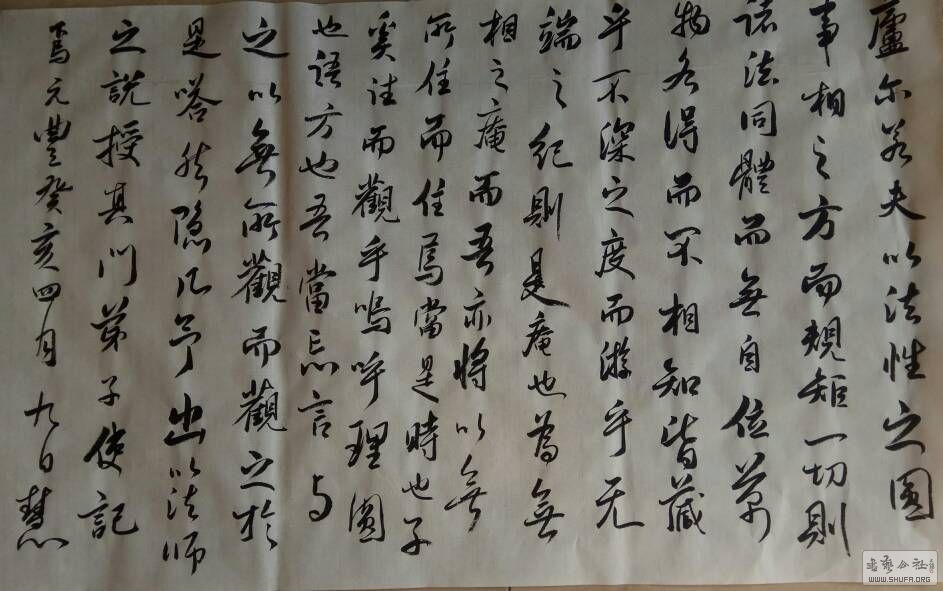 廬尔若夫以法性之圆
事相之方而規矩一切則
诸法同體而無自位萬
物各得而不相知皆藏
乎不深之度而游乎无
端之纪則是庵也為無
相之庵而吾亦将以無
所住而住焉當是時也子
奚往而觀乎嗚呼理圆
也语方也吾當忘言与
之以無所觀而觀之於
是嗒然隐几予出以法师
之説授其门弟子使記
焉元豊癸亥四月九日慧
书艺公社
WWW.SHUFA.ORG